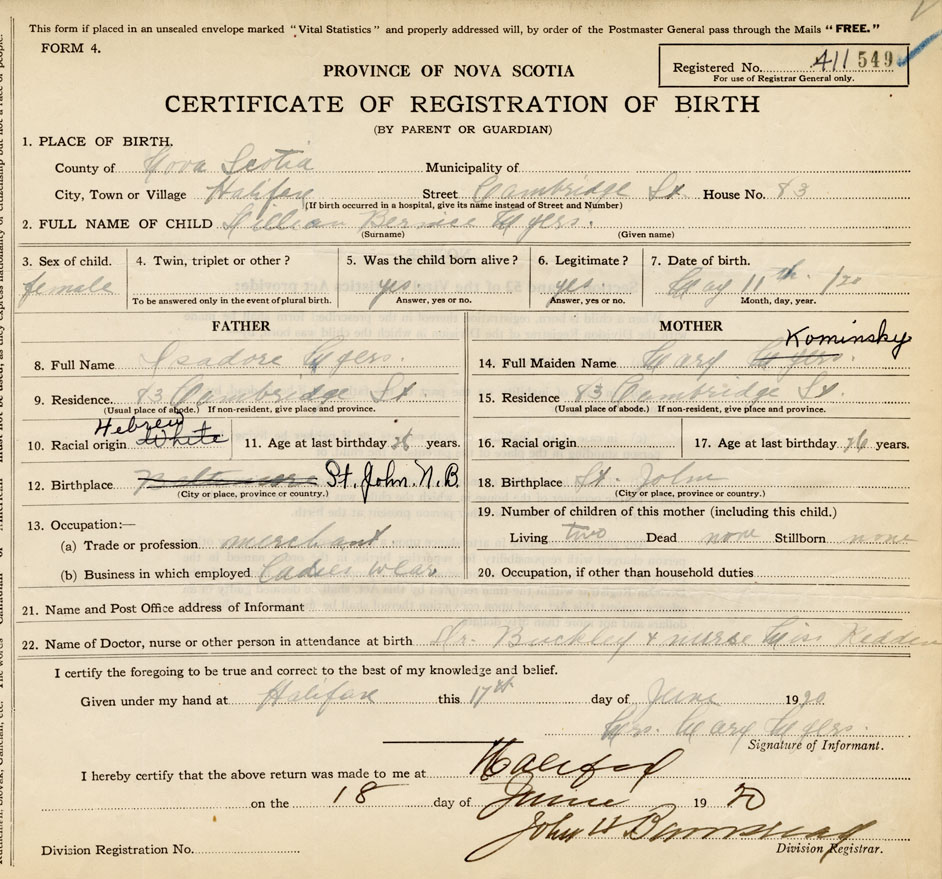 This form if placed in an unsealed envelope marked "Vital Statistics" and properly addressed will, by order of the Postmaster General pass through the Mails "FREE."
FORM 4.
Registered No. 411 549
For use of Registrar General only.
PROVINCE OF NOVA SCOTIA
CERTIFICATE OF REGISTRATION OF BIRTH
(BY PARENT OR GUARDIAN)
1. PLACE OF BIRTH.
County of Nova Scotia Municipality of
City, Town or Village Halifax Street Cambridge St. House No. 83
(If birth occurred in a hospital, give its name instead of Street and Number)
2. FULL NAME OF CHILD Lillian Bernice Myers.
(Surname) (Given name)
3. Sex of child. 4. Twin, triplet or other? 5. Was the child born alive? 6. Legitimate? 7. Date of birth.
female yes yes May 11th /20
To be answered only in the event of plural birth. Answer, yes or no. Answer, yes or no. Month, day, year.
FATHER
8. Full Name Isadore Myers.
9. Residence. 83 Cambridge St.
(Usual place of abode.) If non-resident, give place and province.
Hebrew
10. Racial origin White 11. Age at last birthday years.
12. Birthplace St. John. N.B.
(City or place, province or country.)
13. Occupation:—
(a) Trade or profession merchant
(b) Business in which employed Ladies wear
MOTHER
Kominsky
14. Full Maiden Name Mary Myers.
15. Residence 83 Cambridge St.
(Usual place of abode.) If non-resident, give place and province.
16. Racial origin 17. Age at last birthday years.
18. Birthplace St. John
(City or place, province or country.)
19. Number of children of this mother (including this child.)
Living two Dead none Stillborn none
20. Occupation, if other than household duties
21. Name and Post Office address of Informant
22. Name of Doctor, nurse or other person in attendance at birth Dr. Buckley & nurse Miss Redden
I certify the foregoing to be true and correct to the best of my knowledge and belief.
Given under my hand at Halifax this 17th day of June 1920
Mrs. Mary Myers.
Signature of Informant.
I hereby certify that the above return was made to me at Halifax
on the 18 day of June 19 20
John H Barnstead
Division Registration No. Division Registrar.